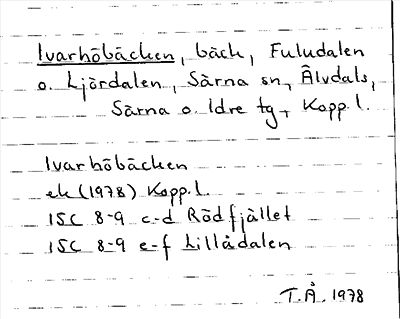 Ivarhöbäcken, bäck, Fuludalen
o. Ljördalen, Särna sn, Älvdals,
Särna o. Idre tg, Kopp. l.
Ivarhöbäcken
ek (1978) Kopp. l.
15C 8-9 c-d Rödfjället
15C 8-9 e-f Lillådalen
T.Å. 1978